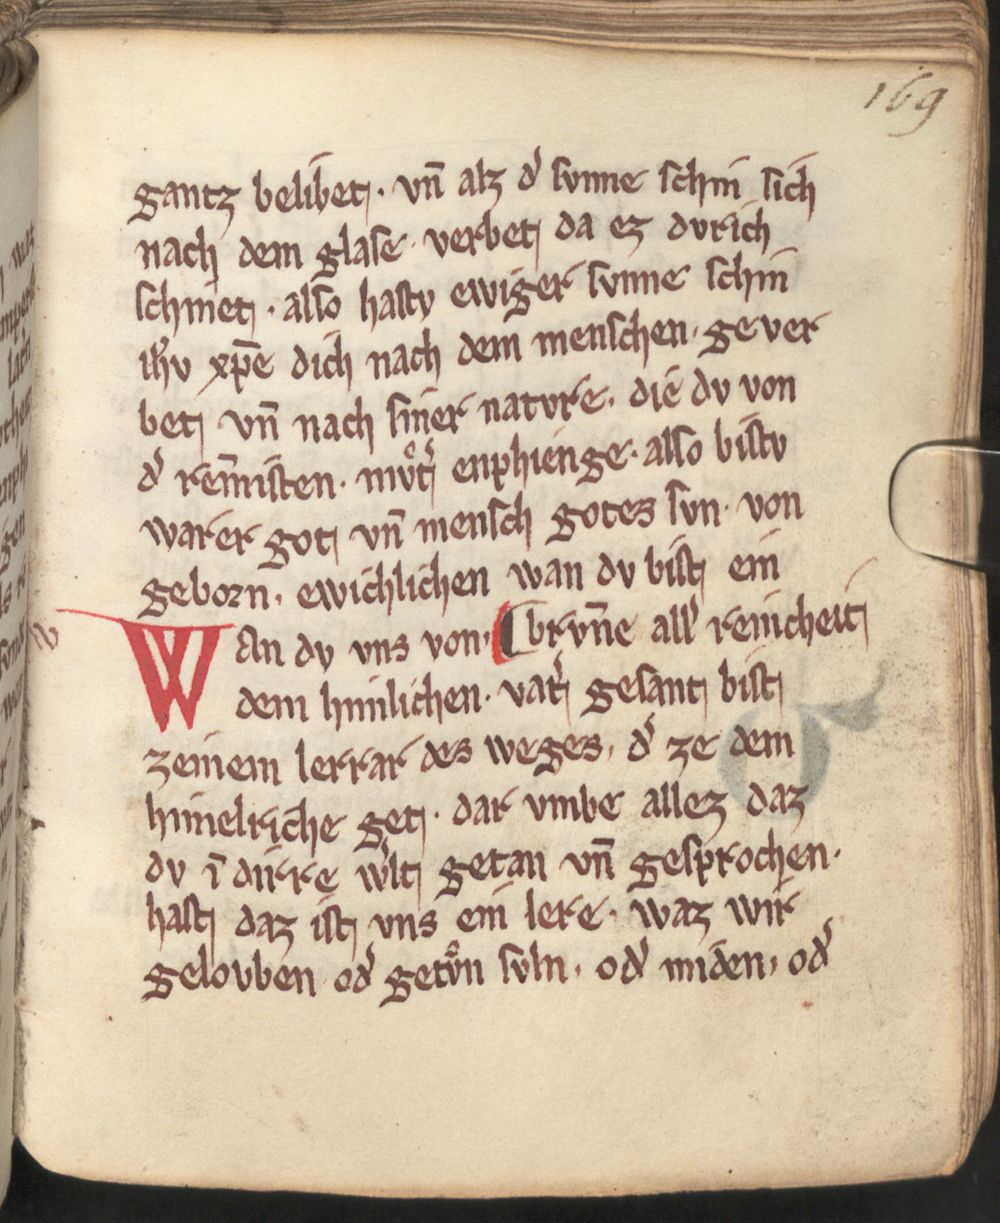 169
gantz belibet. vn̄ alz d͛ sunne schin sich
nach dem glase verbet da ez durich
schinet. also hastu ewiger sunne schin
ihu xp̄e dich nach dem menschen. gever
bet vn̄ nach siner nature. die du von
d͛ ren̄isten. mv̊t͛ enphienge. also bistu
warer got vn̄ mensch gotes sun. von
geborn. ewichlichen wan du bist ein
WAn du uns von. ⸿ brvn̄e all͛ reinicheit
dem himlichen. vat͛ gesant bist
zeinem lerrar des weges. d͛ ze dem
himelriche get. dar vmbe allez daz
du ī dirre w͛lt getan vn̄ gesprochen.
hast daz ist vns ein lere. waz wir
gelouben od͛ getv̊n suln. od͛ miden. od͛